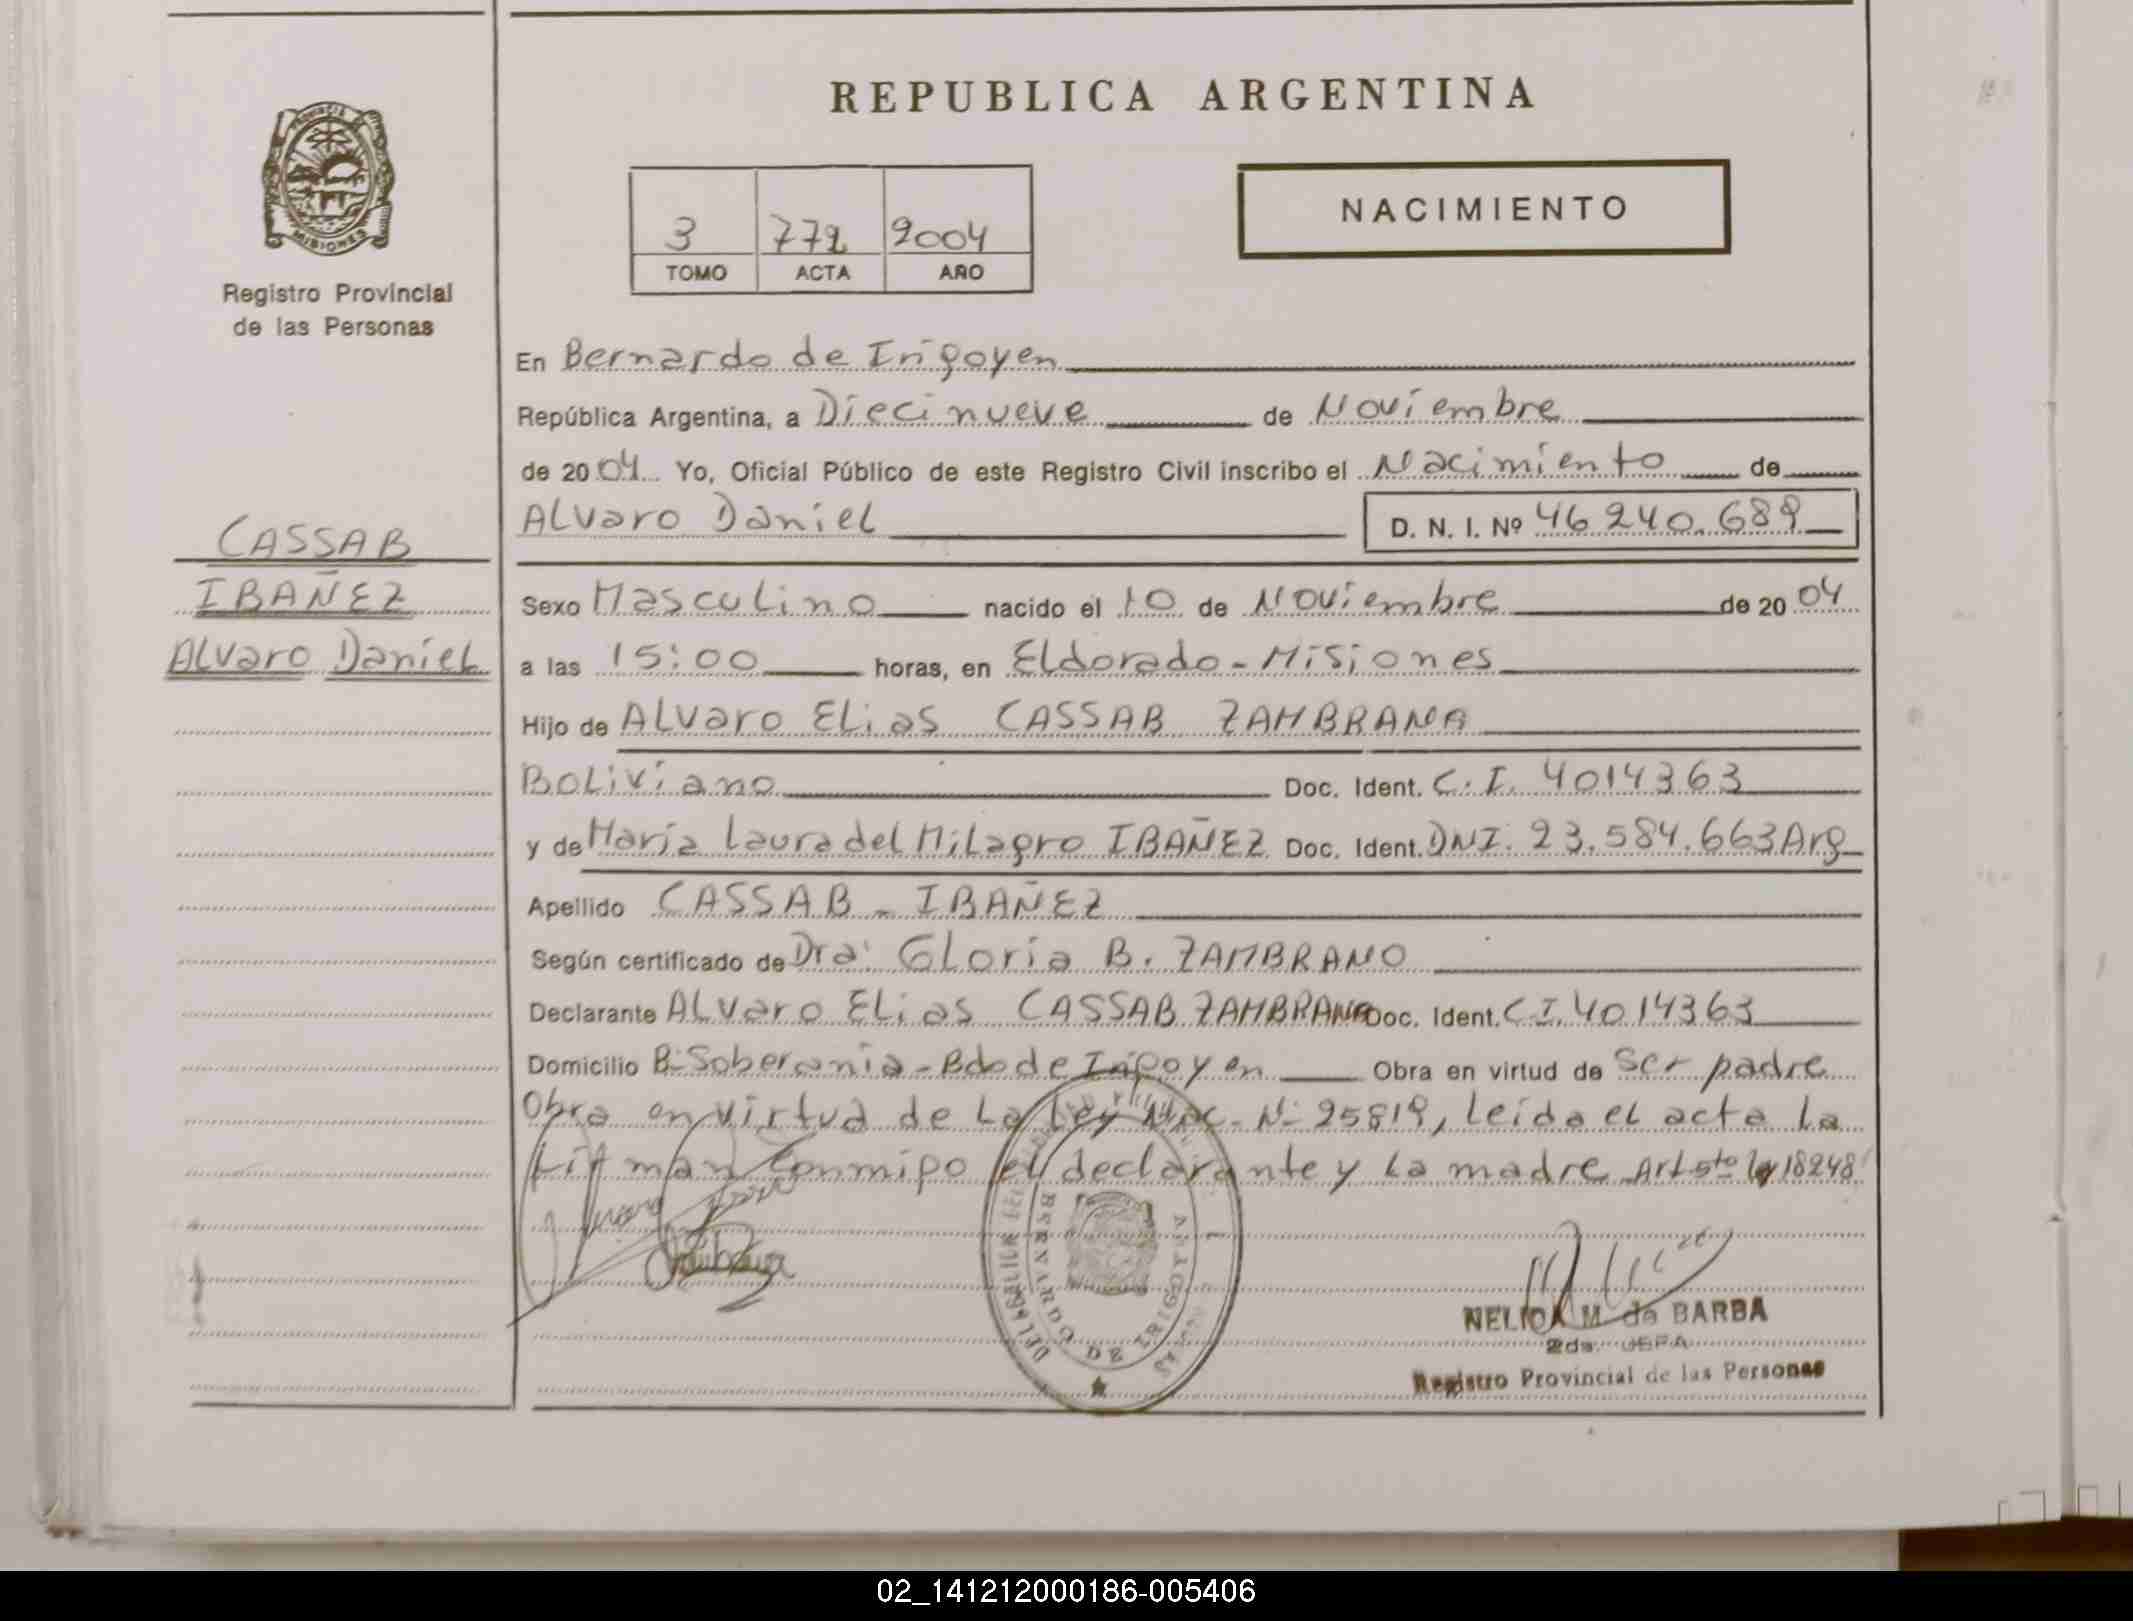 REPUBLICA ARGENTINA
PROVINCIA DE
MISIONES
Registro Provincial
de las Personas
3 772 2004
TOMO ACTA AÑO
NACIMIENTO
En Bernardo de Irigoyen
República Argentina, a Diecinueve de Noviembre
de 2004 Yo, Oficial Público de este Registro Civil inscribo el Nacimiento de
Alvaro Daniel D. N. I. Nº 46.240.689
CASSAB
IBAÑEZ
Alvaro Daniel
Sexo Masculino nacido el 10 de Noviembre de 2004
a las 15:00 horas, en Eldorado - Misiones
Hijo de Alvaro Elias CASSAB ZAMBRANA
Boliviano Doc. Ident. C.I. 4014363
y de María Laura del Milagro IBAÑEZ Doc. Ident. DNI. 23.584.663 Arg
Apellido CASSAB - IBAÑEZ
Según certificado de Dra: Gloria B. ZAMBRANO
Declarante Alvaro Elias CASSAB ZAMBRANA Doc. Ident. C.I. 4014363
Domicilio Bº Soberania - Bdo de Irigoyen Obra en virtud de Ser padre
Obra en virtud de La Ley Nac. Nº 25819, leida el acta la
firman conmigo el declarante y la madre Art 5to ley 18248
BERNARDO DE IRIGOYEN
NELIDA M. de BARBA
2da. JEFA
Registro Provincial de las Personas
02_141212000186-005406